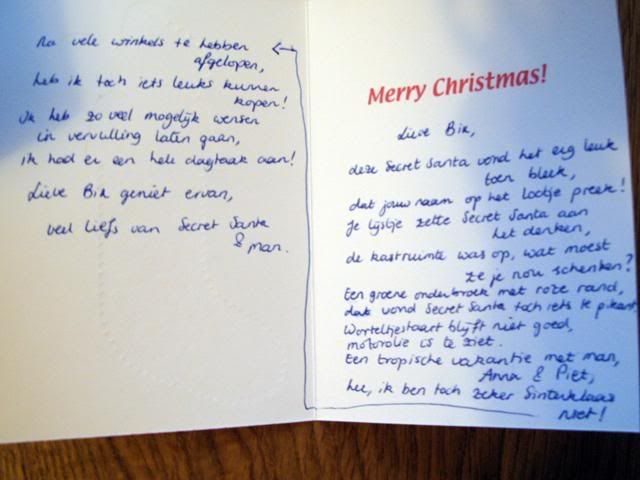 Merry Christmas!
Lieve
deze Secret Santa vond het erg leuk
toen bleek,
dat jouw naam op het lootje preek!
Je lijstje zette Secret Santa aan
het denken,
de kastruimte was op, wat moest
ze je nou schenken?
Een groene onderbroek met roze rand,
dat vond Secret Santa toch iets te pikant,
Worteltjestaart blijft niet goed,
motorolie is te ziet.
Een tropische vakantie met man,
Anna & Piet,
hee, ik ben toch zeker Sinterklaas
niet!
Na vele winkels te hebben
afgelopen,
heb ik toch iets leuks kunnen
kopen!
Ik heb zo veel mogelijk wensen
in vervulling laten gaan,
ik had er een hele dagtaak aan!
Lieve geniet ervan,
veel liefs van Secret Santa
& man.